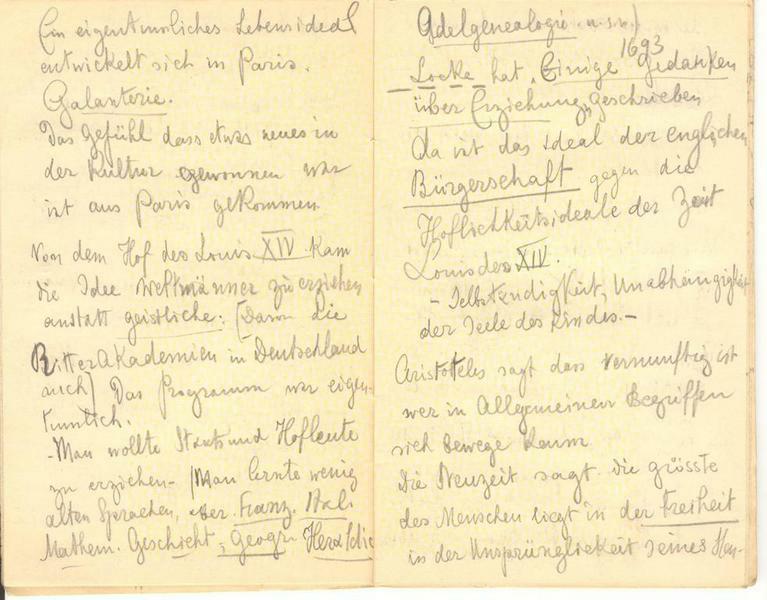 Ein eigentumliches Lebensideal
entwickelt sich in Paris.
Galanterie.
Das Gefühl dass etwas neues in
der Kultur gewonnen war
ist aus Paris gekommen
Von dem Hof des Louis XIV. Kam
die Idee Weltmänner zu erziehen
anstatt geistliche: (Daron die
RitterAkademien in Deutschland
auch) Das Programm war eigen-
tumlich.
-Man wollte Staats und Hofleute
zu erziehen- (Man lernte wenig
alten Sprachen, aber Franz. Ital.
Mathem. Geschicht, Geogr. Heraldic
Adelgenealogie u.s.w.)
1693
Locke hat "Einige Gedanken
über Erziehung" geschrieben
Da ist das ideal der englichen
Bürgerschaft gegen die
Hoflichkeitsideale der Zeit
Louis des XIV.
- Selbstendigkeit, Unabhängigkeit
der Seele des Kindes.-
Aristoteles sagt dass vernunftig ist
wer in Allgemeinen Begriffen
sich bewege kann
Die Neuzeit sagt die grösste
des Menschen liegt in der Freiheit
in der Unsprünglickeit seines Han-